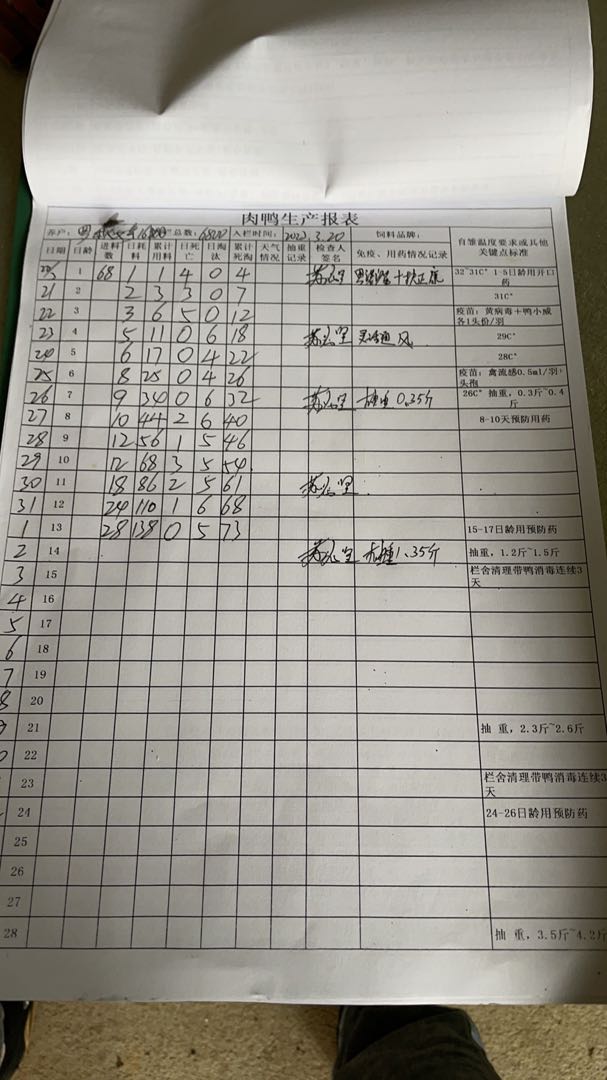 肉鸭生产报表
养户: 栏总数: 6800 入栏时间: 2022.3.20 饲料品牌:
日期 日龄 进料数 日耗料 累计用料 日死亡 日淘汰 累计死淘 天气情况 抽重记录 检查人签名 免疫、用药情况记录 自雏温度要求或其他关键点标准
1 68 1 1 4 0 4 32~31C° 1-5日龄用开口药
21 2 2 3 3 0 7 31C°
22 3 3 6 5 0 12 疫苗: 黄病毒+鸭小威各1头份/羽
23 4 5 11 0 6 18 通风 29C°
24 5 6 17 0 4 22 28C°
25 6 8 25 0 4 26 疫苗: 禽流感0.5ml/羽 头孢
26 7 9 34 0 6 32 抽重 0.35斤 26C° 抽重, 0.3斤~0.4斤
27 8 10 44 2 6 40 8-10天预防用药
28 9 12 56 1 5 46
29 10 12 68 3 5 54
30 11 18 86 2 5 61
31 12 24 110 1 6 68
1 13 28 138 0 5 73 15-17日龄用预防药
2 14 抽重1.35斤 抽重, 1.2斤~1.5斤
3 15 栏舍清理带鸭消毒连续3天
4 16
5 17
6 18
7 19
8 20
21 抽 重, 2.3斤~2.6斤
22
23 栏舍清理带鸭消毒连续3天
24 24-26日龄用预防药
25
26
27
28 抽 重, 3.5斤~4.2斤